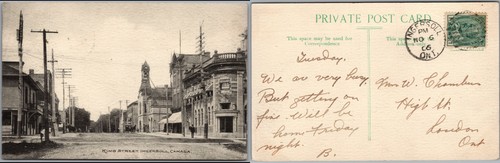 KING STREET INGERSOLL, CANADA.
PRIVATE POST CARD
This space may be used for
Correspondence
INGERSOLL
PM
NO 6
06
ONT.
Tuesday.
We are very busy.
But getting on
fine. Will be
home Friday
night.
B.
Mrs W. Chambers
High St.
London
Ont